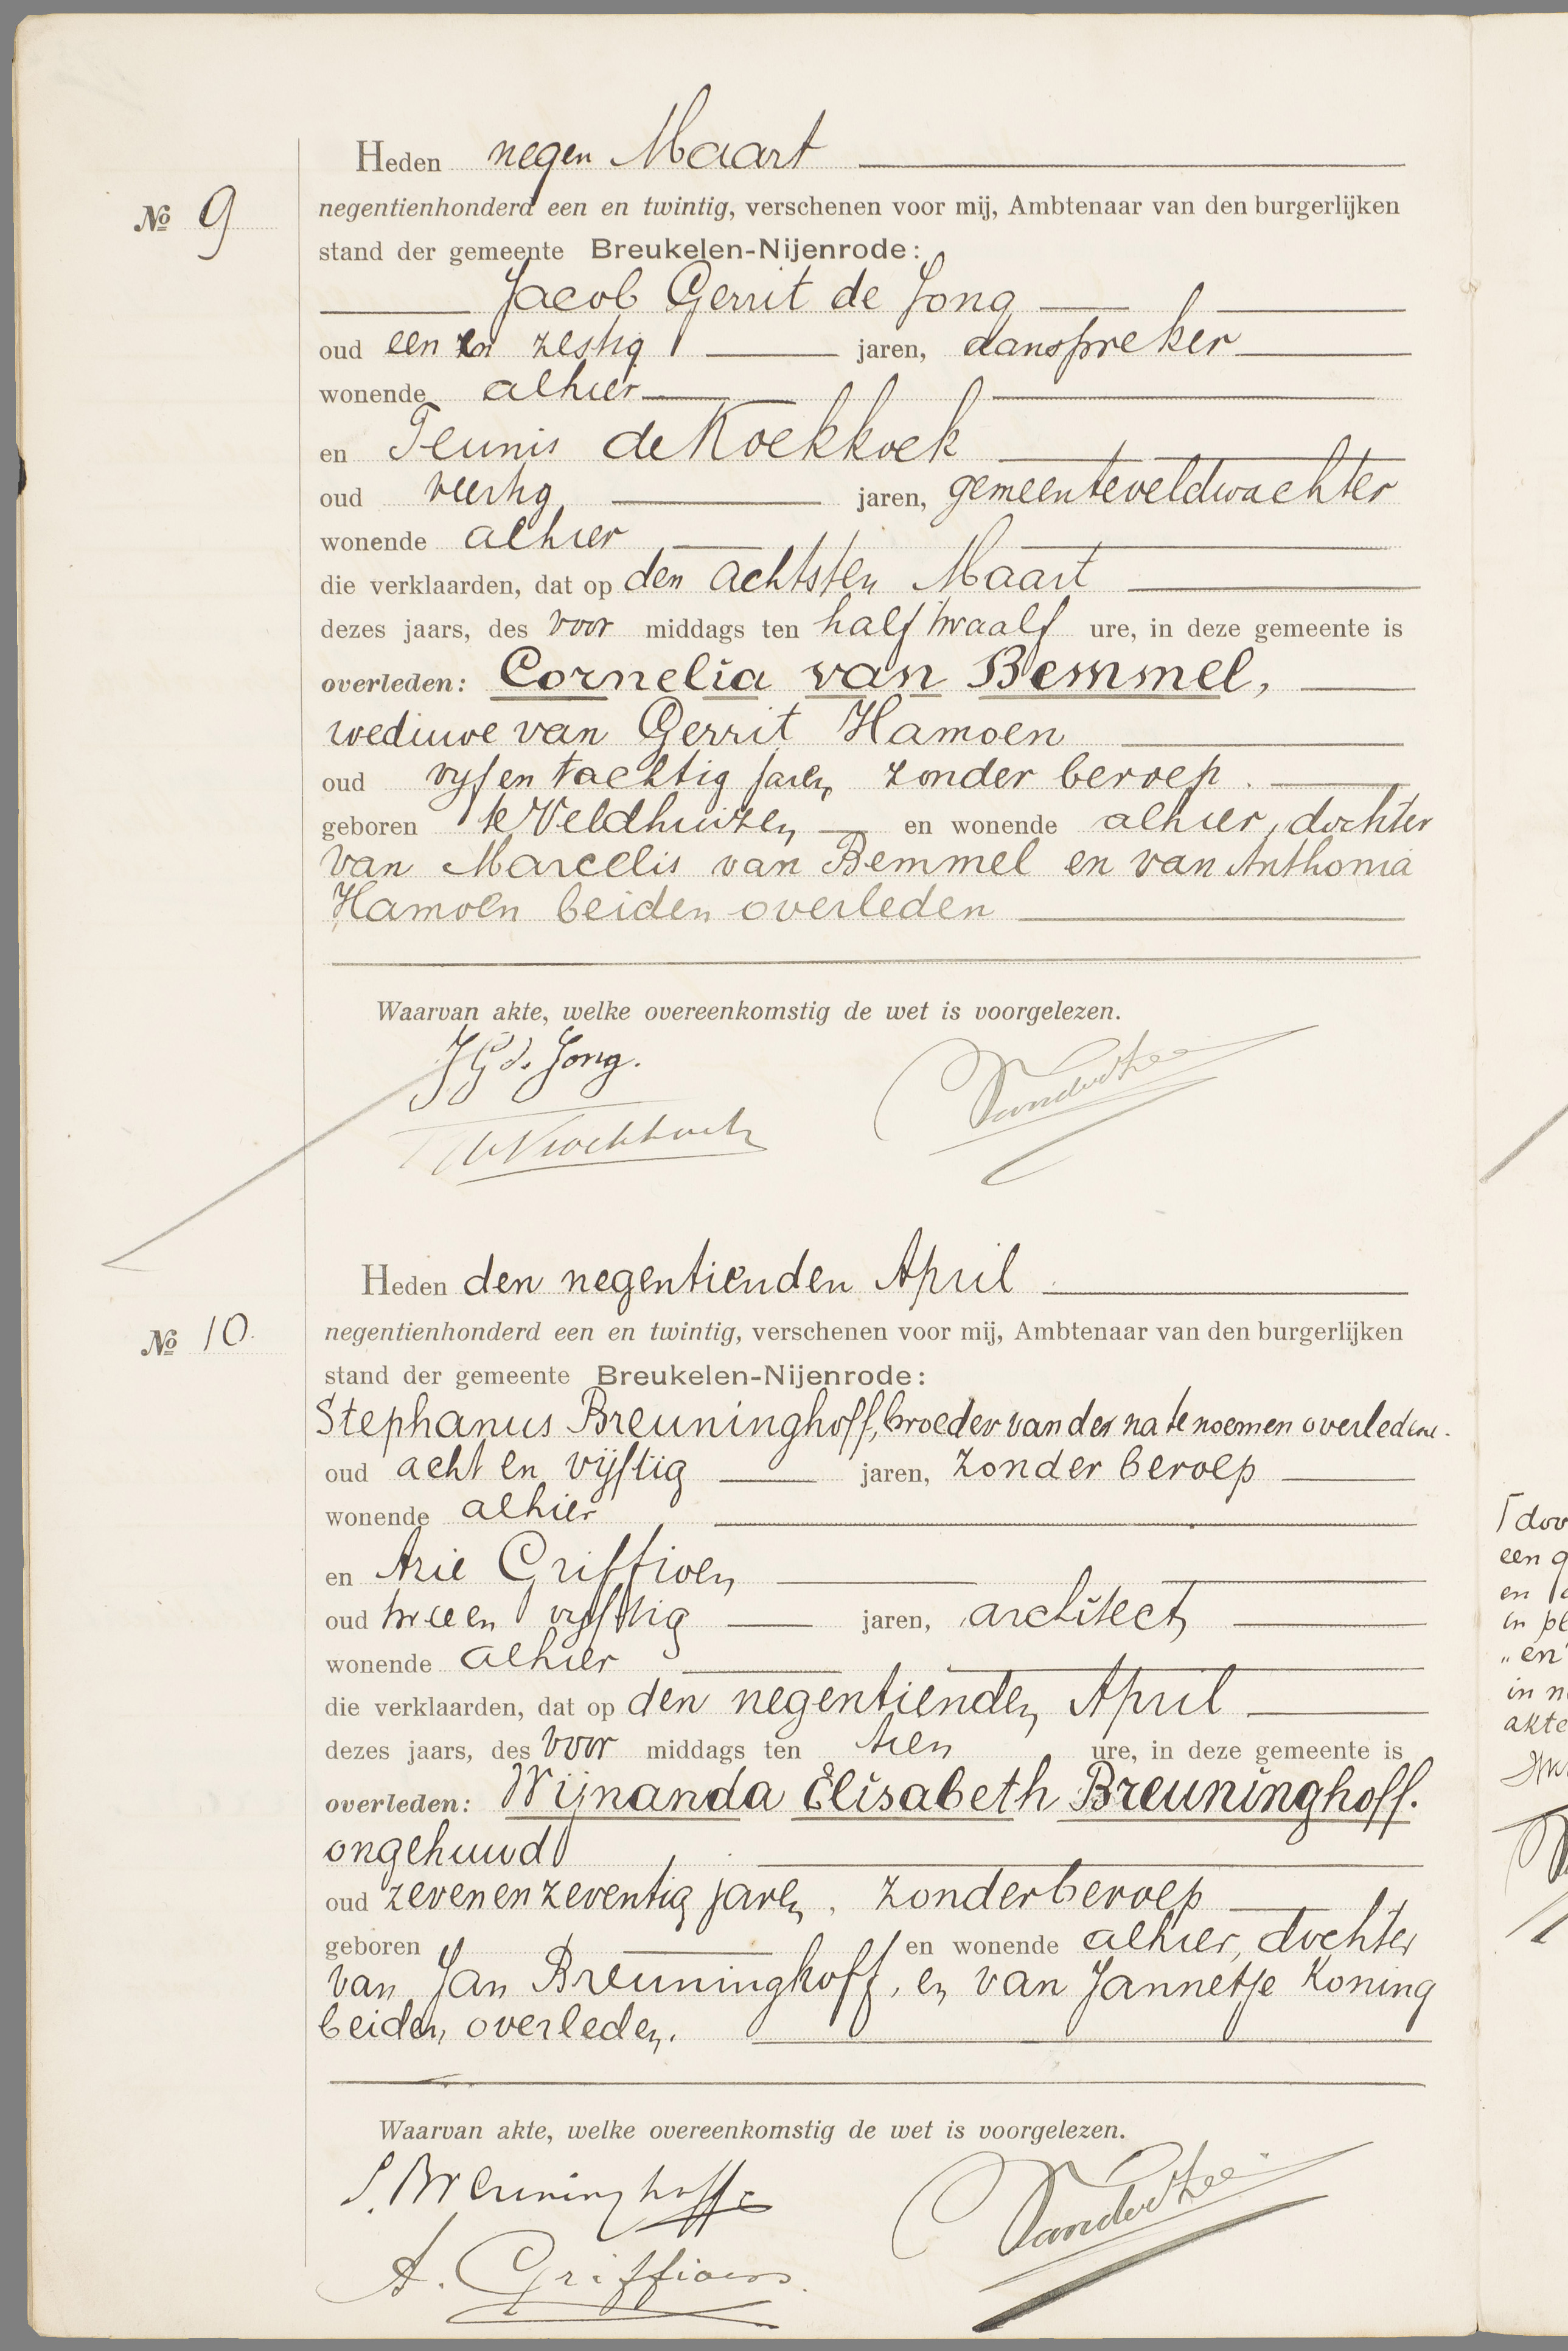 Heden negen Maart
No 9
negentienhonderd een en twintig, verschenen voor mij, Ambtenaar van den burgerlijken
stand der gemeente Breukelen-Nijenrode:
Jacob Gerrit de Jong
oud een en zestig jaren, aanspreker
wonende alhier
en Teunis de Koekkoek
oud veertig jaren, gemeenteveldwachter
wonende alhier
die verklaarden, dat op den achtsten Maart
dezes jaars, des voor middags ten half twaalf ure, in deze gemeente is
overleden: Cornelia van Bemmel,
weduwe van Gerrit Hamoen
oud vijf en tachtig jaren, zonder beroep.
geboren te Veldhuizen en wonende alhier, dochter
van Marcelis van Bemmel en van Anthonia
Hamoen beiden overleden
Waarvan akte, welke overeenkomstig de wet is voorgelezen.
J G d. Jong.
T de Koekkoek
Heden den negentienden April
No 10.
negentienhonderd een en twintig, verschenen voor mij, Ambtenaar van den burgerlijken
stand der gemeente Breukelen-Nijenrode:
Stephanus Breuninghoff, broeder van der na te noemen overledene.
oud acht en vijftig jaren, zonder beroep
wonende alhier
en Arie Griffioen
oud twee en vijftig jaren, architect
wonende alhier
die verklaarden, dat op den negentienden April
dezes jaars, des voor middags ten tien ure, in deze gemeente is
overleden: Wijnanda Elisabeth Breuninghoff.
ongehuwd
oud zeven en zeventig jaren, zonder beroep
geboren en wonende alhier, dochter
van Jan Breuninghoff, en van Jannetje Koning
beiden overleden.
Waarvan akte, welke overeenkomstig de wet is voorgelezen.
S. Breuninghoff
A. Griffioen
een
en
in
"en"
in
akte